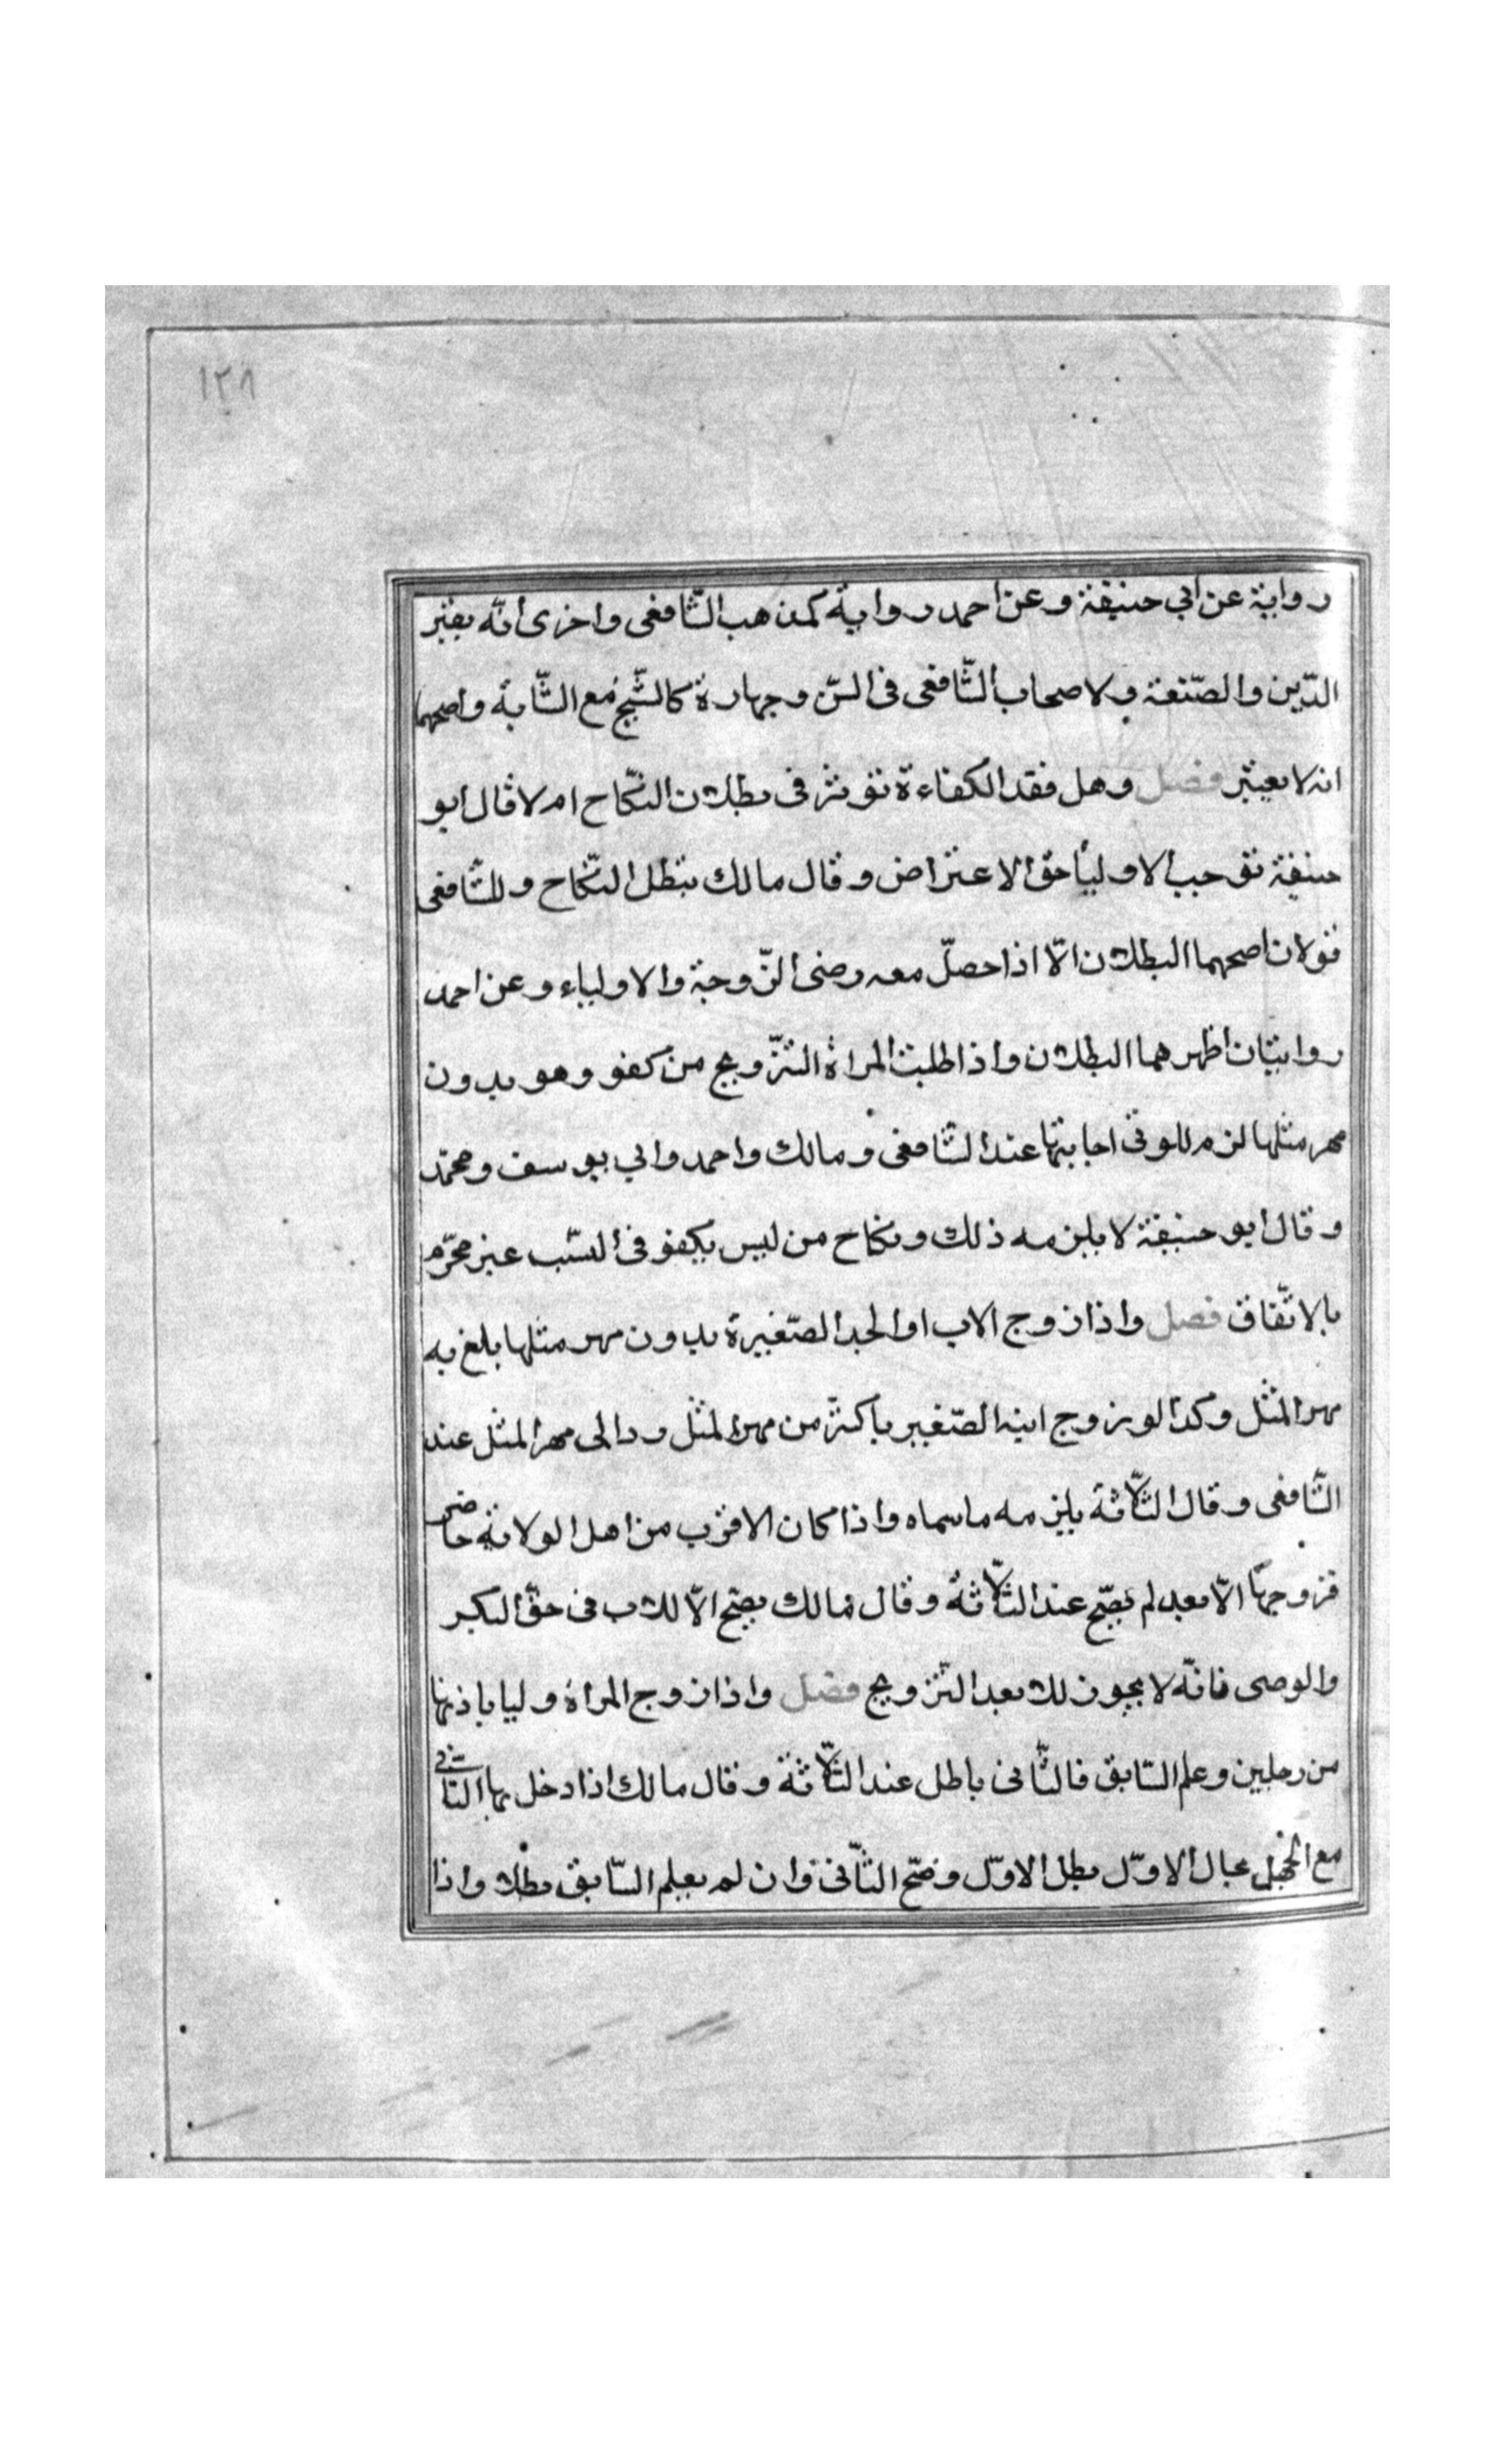 ١٢٨
رواية عن ابي حنيفة وعن احمد رواية كمذهب الشّافعى واخرى انّه يعتبر
الدّين والصّنعة ولاصحاب الشّافعى فى السّن وجهارة كالشّيخ مع الشّابة واصحهما
انه لا يعتبر فصل وهل فقد الكفاءة تؤثر فى بطلان النّكاح ام لا قال ابو
حنيفة توجب الاوليآ حق الاعتراض وقال مالك تبطل النّكاح وللشّافعى
قولان اصحهما البطلان الّا اذا حصلّ معه رضى الزّوجة والاولياء وعن احمد
روايتان اظهرهما البطلان واذا طلبت المراة التّزويج من كفو وهو بدون
مهر مثلها لزم للولى اجابتها عند الشّافعى ومالك واحمد وابي يوسف ومحمّد
وقال ابو حنيفة لا يلزمه ذلك ونكاح من ليس بكفو فى النّسب غير محرّم
بالاتّفاق فصل واذا زوج الاب او الجد الصّغيرة بدون مهر مثلها بلغ به
مهر المثل وكذا لو زوج ابنه الصّغير باكثر من مهر المثل رد الى مهر المثل عند
الشّافعى وقال الثّلاثة يلزمه ماسماه واذا كان الاقرب من اهل الولاية حاضر
فزوجها الابعد لم يصّح عند الثّلاثة وقال مالك يصّح الّا للاب فى حقّ البكر
والوصى فانّه لا يجوز للابعد التّزويج فصل واذا زوج المراة وليا باذنها
من رجلين وعلم السّابق فالثّانى باطل عند الثّلاثة وقال مالك اذا دخل بها الثّانى
مع الجهل بحال الاوّل بطل الاوّل وصّح الثّانى وان لم يعلم السّابق بطلا واذا